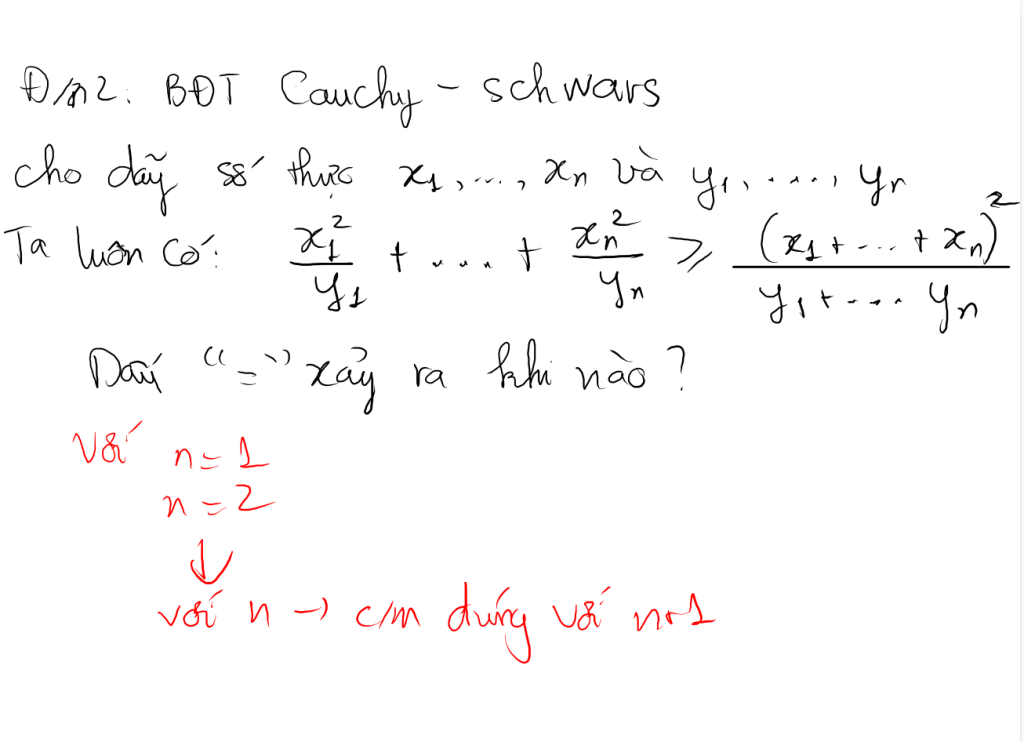 Đ/n 2: BĐT Cauchy - schwars
cho dãy số thực x₁, ..., xₙ và y₁, ...., yₙ
Ta luôn có: x₁²/y₁ + .... + xₙ²/yₙ ⩾ (x₁ + ... + xₙ)²/(y₁ + .... yₙ)
Dấu "=" xảy ra khi nào?
Với n = 1
n = 2
↓
với n → c/m đúng với n+1